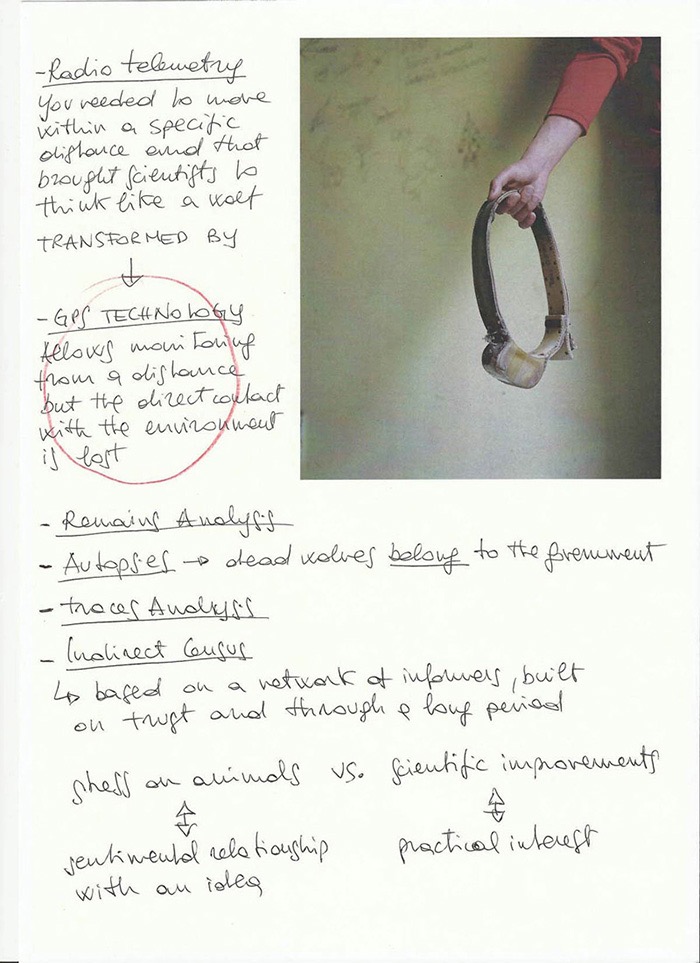 - Radio telemetry
You needed to move
within a specific
distance and that
brought scientists to
think like a wolf
TRANSFORMED BY
↓
- GPS TECHNOLOGY
Allows monitoring
from a distance
but the direct contact
with the environment
is lost
- Remains Analysis
- Autopsies → dead wolves belong to the government
- Traces Analysis
- Indirect Census
↳ based on a network of informers, built
on trust and through a long period
stress on animals vs. scientific improvements
↕ ↕
sentimental relationship practical interest
with an idea